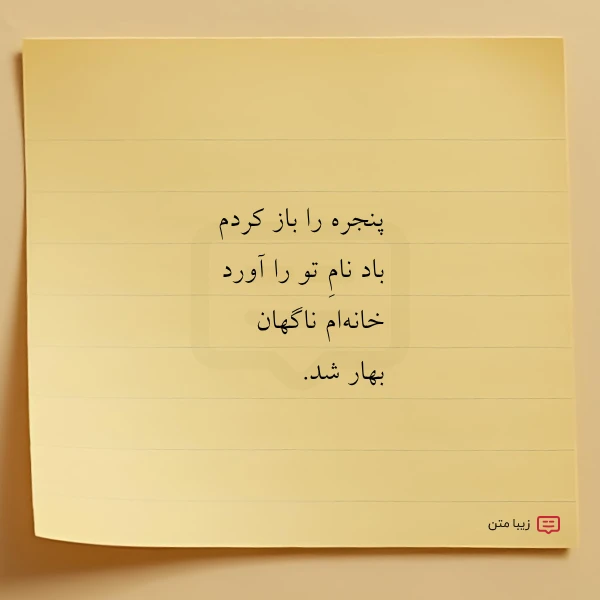 پنجره را باز کردم
باد نامِ تو را آورد
خانه‌ام ناگهان
بهار شد.
زیبا متن